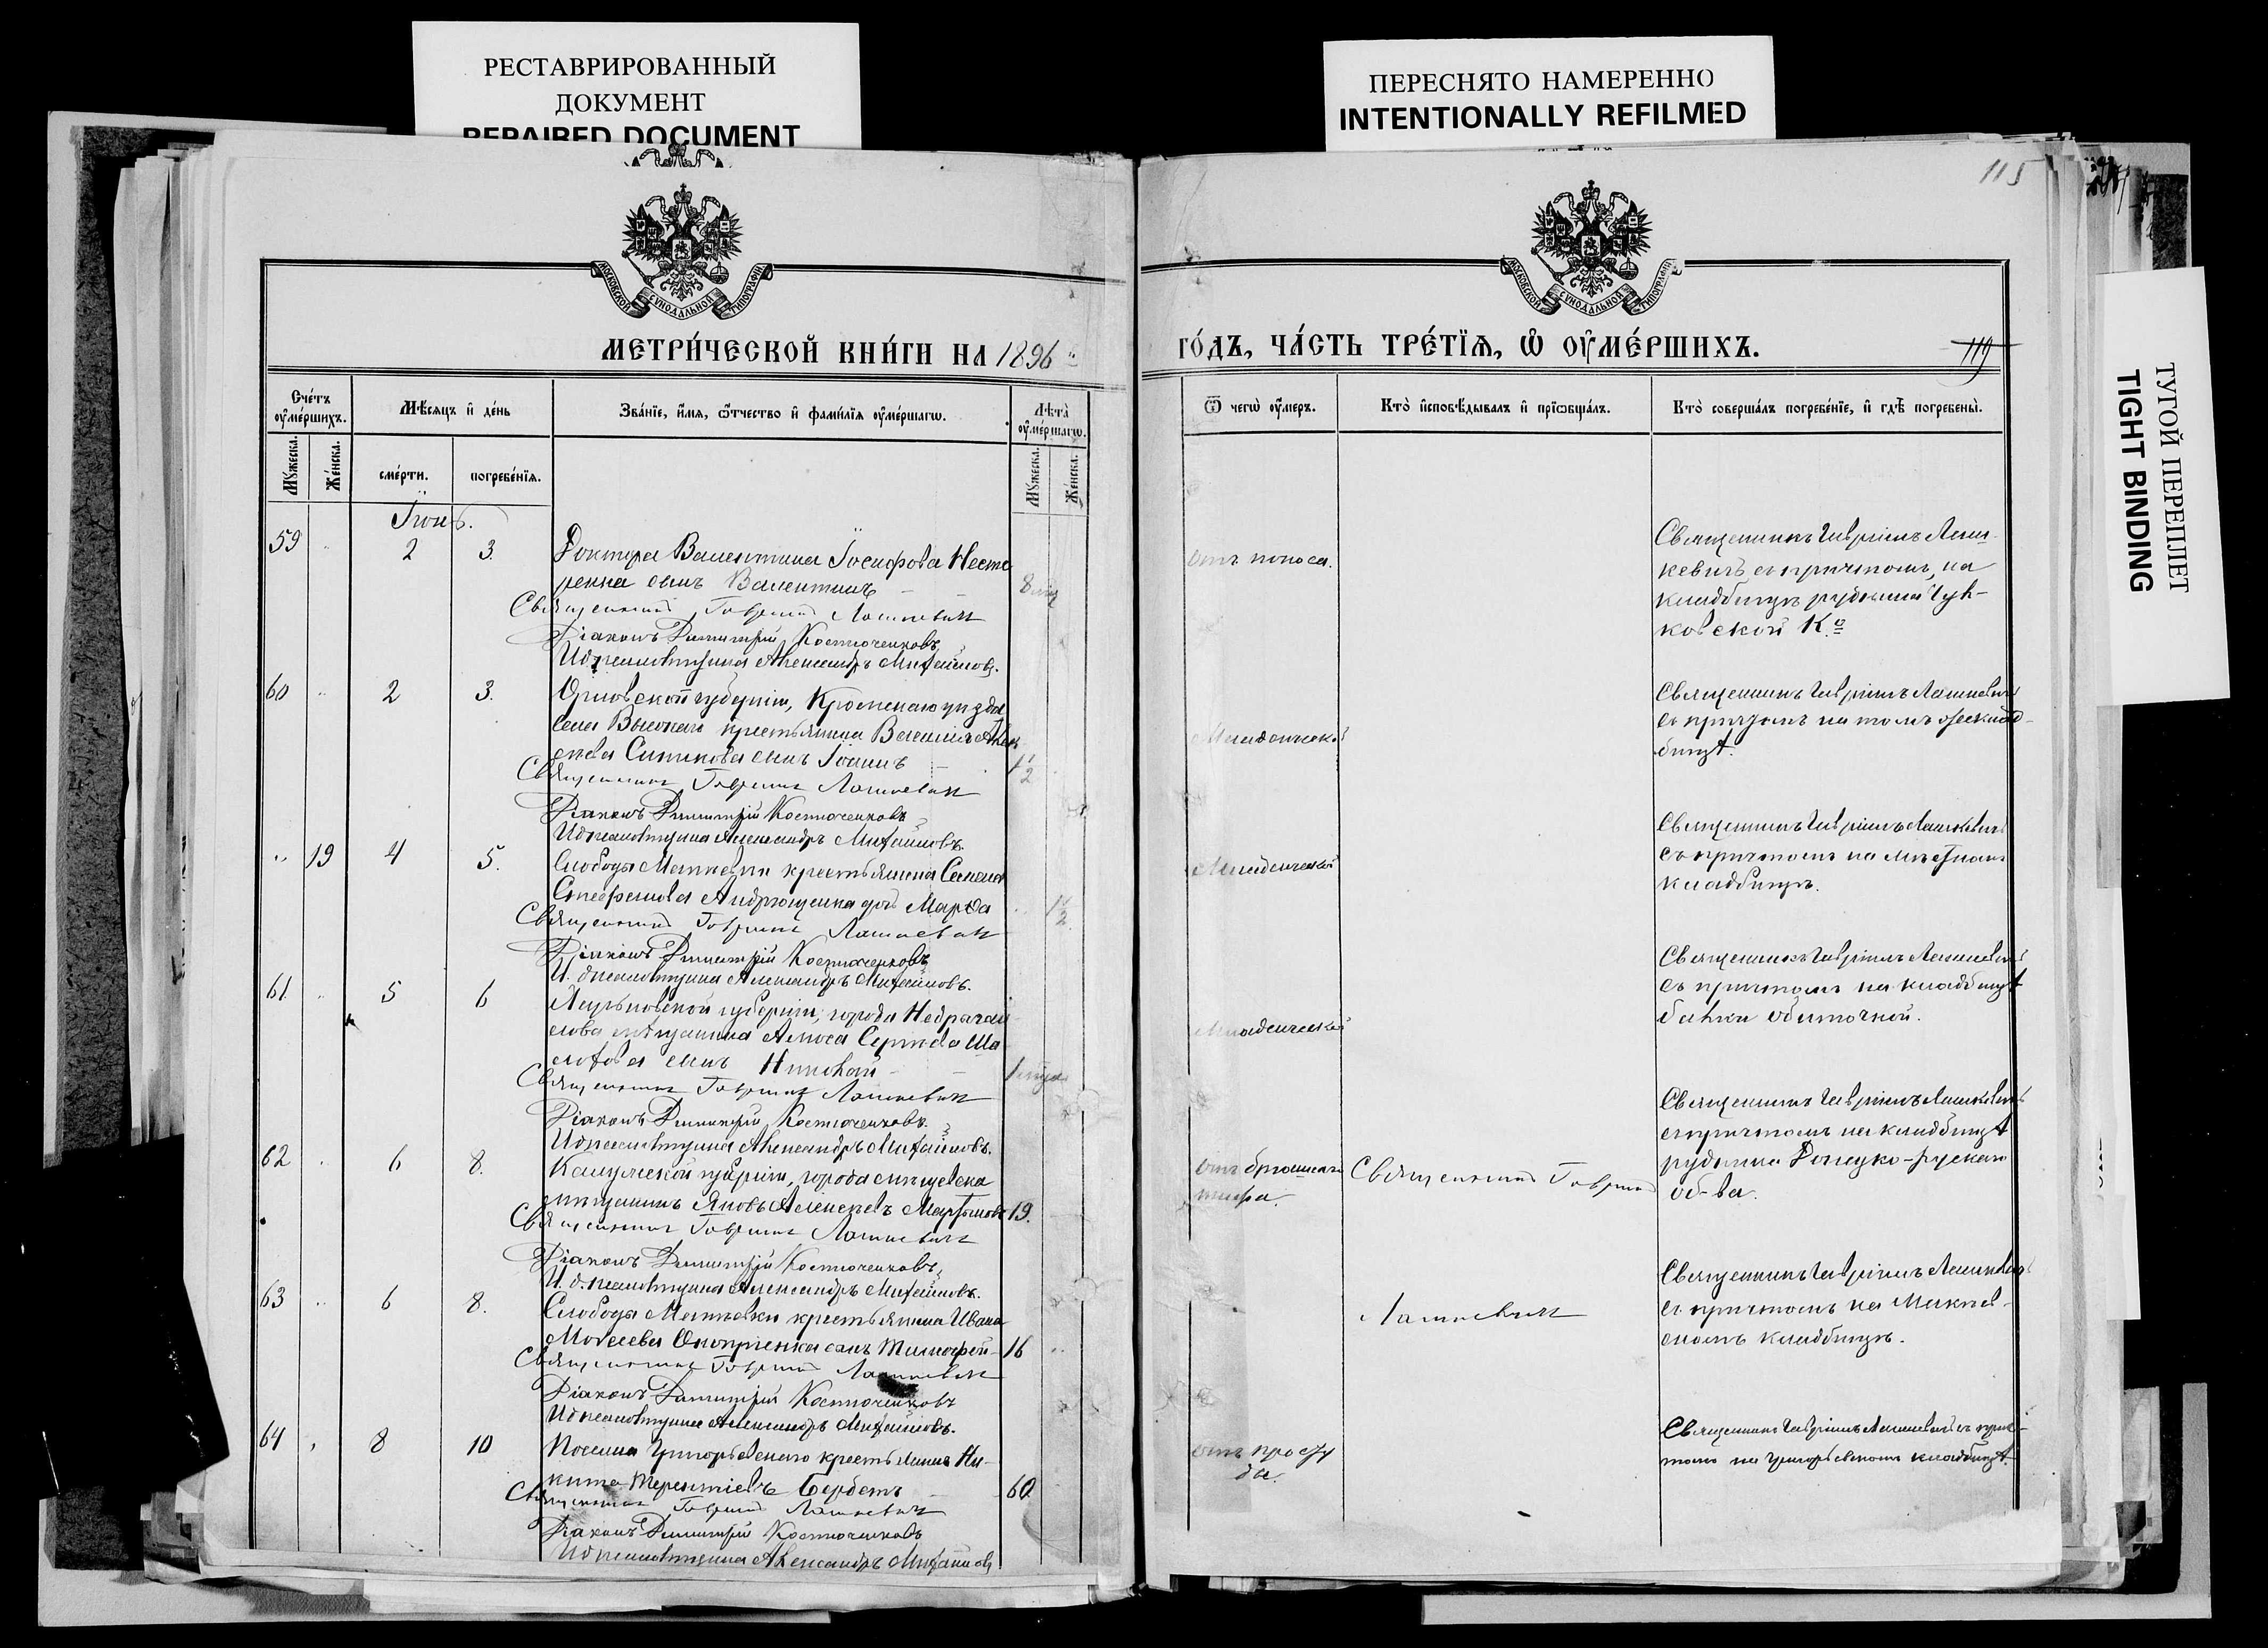 РЕСТАВРИРОВАННЫЙ
ДОКУМЕНТ
REPAIRED DOCUMENT
ПЕРЕСНЯТО НАМЕРЕННО
INTENTIONALLY REFILMED
ТУГОЙ ПЕРЕПЛЕТ
TIGHT BINDING
115
МОСКОВСКОЙ СѴНОДАЛЬНОЙ ТИПОГРАФІИ
МОСКОВСКОЙ СѴНОДАЛЬНОЙ ТИПОГРАФІИ
МЕТРИ́ЧЕСКОЙ КНИ́ГИ НА 1896
ГО́ДЪ, ЧА́СТЬ ТРЕ́ТЇѦ, Ѡ ОУМЕ́РШИХЪ.
119
Сче́тъ оумершихъ.
Мѣсяцъ и де́нь
Зва́нїе, и́мя, ѻтчество и фами́лїя оуме́ршагѡ.
Лѣта̀ оуме́ршагѡ.
Мꙋжеска.
Же́нска.
сме́рти.
погребе́нїя.
Мꙋжеска.
Же́нска.
Ѿ чегѡ̀ оу́меръ.
Кто̀ и҆сповѣ́дывалъ и҆ прїѡбща́лъ.
Кто̀ соверша́лъ погребе́нїе, и҆ гдѣ̀ погребены̀.
Іюнь.
59 2 3. Доктора Валентина Іосифова Несте
ренка сынъ Валентинъ 8 мц
Священникъ Гавріилъ Лашкевич
Діаконъ Димитрій Костюченковъ
И д псаломщика Александръ Михайловъ.
Отъ поноса.
Священникъ Гавріилъ Лаш-
кевичъ съ причтомъ, на
кладбищѣ рудника
ковской Кº
60 2 3. Орловской губерніи, Кромскаго уѣзда
села Высокаго крестьянина Василія Алек
сѣева Ситикова сынъ Іоаннъ 1½
Священникъ Гавріилъ Лашкевич
Діаконъ Димитрій Костюченковъ
И д псаломщика Александръ Михайловъ.
Младенческой
Священникъ Гавріилъ Лашкевичъ
съ причтомъ на томъ же клад-
бищѣ.
19 4 5. Слободы Макѣевки крестьянина Семена
Стефанова Андрющенка дочь Марѳа 1½
Священникъ Гавріилъ Лашкевич
Діаконъ Димитрій Костюченковъ
И. д псаломщика Александръ Михайловъ.
Младенческой
Священникъ Гавріилъ Лашкевичъ
съ причтомъ на мѣстномъ
кладбищѣ.
61 5 6 Харьковской губерніи, города Недригай
лова мѣщанина
сынъ Николай 1 мца
Священникъ Гавріилъ Лашкевич
Діаконъ Димитрій Костюченковъ.
И д псаломщика Александръ Михайловъ.
Младенческой
Священникъ Гавріилъ Лашкевичъ
съ причтомъ на кладбищѣ
балки Обиточной.
62 6 8. Калужской губерніи, города Мещевска
мѣщанинъ Яковъ Алексѣевъ Мартыновъ 19.
Священникъ Гавріилъ Лашкевич
Діаконъ Димитрій Костюченковъ,
И. д. псаломщика Александръ Михайловъ.
Отъ брюшнаго
тифа.
Священникъ Гавріилъ
Священникъ Гавріилъ Лашкевичъ
съ причтомъ на кладбищѣ
рудника Донецко-рускаго
об-ва.
63 6 8. Слободы Макѣевки крестьянина Ивана
Моѵсеева Оноприенка сынъ Тимоѳей 16
Священникъ Гавріилъ Лашкевич
Діаконъ Димитрій Костюченковъ
И д псаломщика Александръ Михайловъ.
Лашкевич
Священникъ Гавріилъ Лашкевичъ
съ причтомъ на Макѣев-
скомъ кладбищѣ.
64 8 10 Поселка Григорьевскаго крестьянинъ Ни-
кита Терентіевъ 60
Священникъ Гавріилъ Лашкевич
Діаконъ Димитрій Костюченковъ
И д псаломщика Александръ Михайловъ
отъ просту
ды.
Священникъ Гавріилъ Лашкевичъ съ прич-
томъ на Григорьевскомъ кладбищѣ.